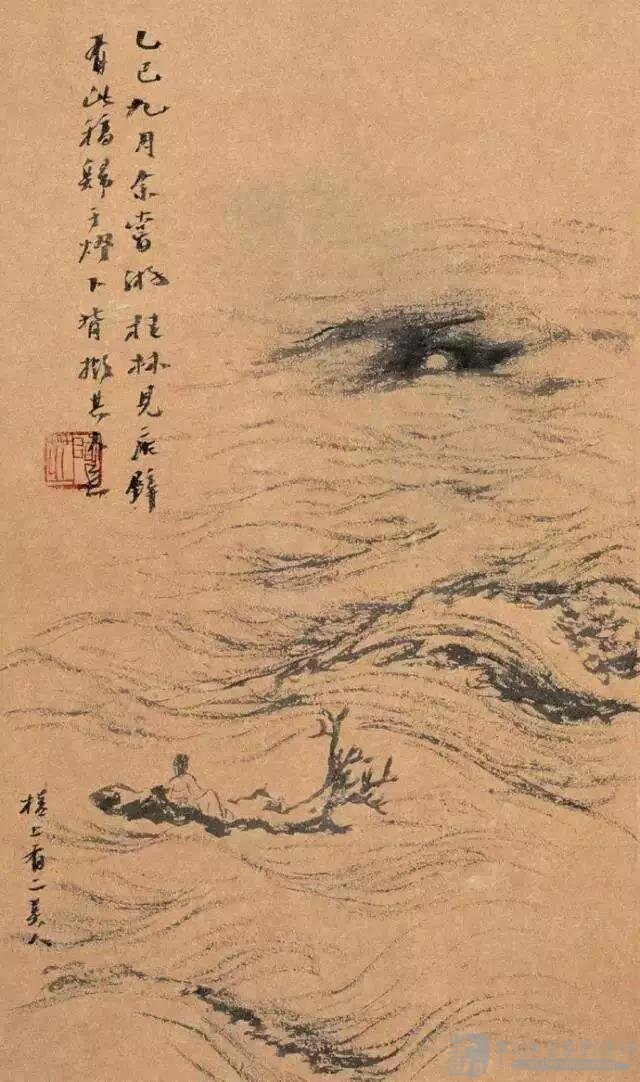 乙巳九月余嘗游桂林見廢醉
有此稿歸于燈下背撫其意
槎上有二美人